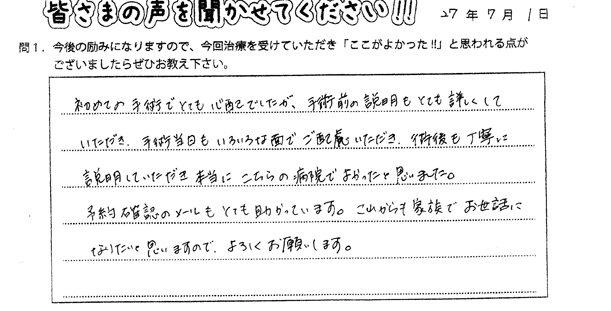 皆さまの声を聞かせてください!! 27年7月1日
問1．今後の励みになりますので、今回治療を受けていただき「ここがよかった!!」と思われる点が
ございましたらぜひお教え下さい。
初めての手術でとても心配でしたが、手術前の説明もとても詳しくして
いただき、手術当日もいろいろな面でご配慮いただき、術後も丁寧に
説明していただき本当にこちらの病院でよかったと思いました。
予約確認のメールもとても助かっています。これからも家族でお世話に
なりたいと思いますので、よろしくお願いします。